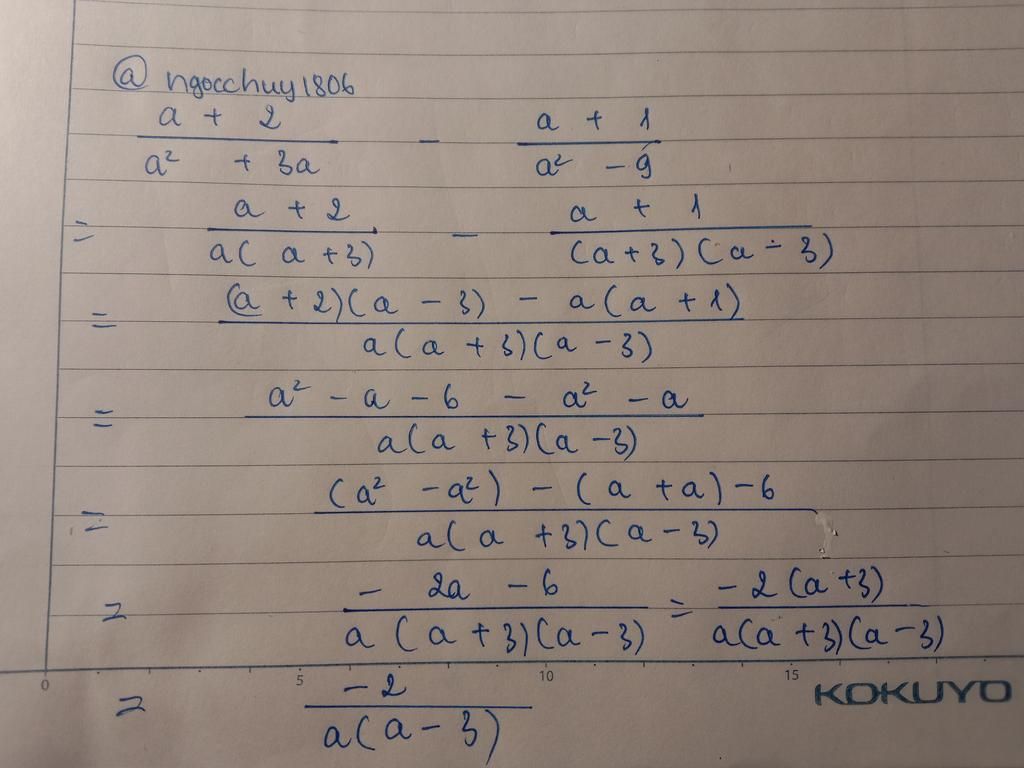 @ngocchuy1806
a + 2 / a² + 3a - a + 1 / a² - 9
= a + 2 / a( a + 3) - a + 1 / (a + 3) (a - 3)
= (a + 2)(a - 3) - a (a + 1) / a (a + 3)(a - 3)
= a² - a - 6 - a² - a / a (a + 3)(a - 3)
= (a² - a²) - (a + a) - 6 / a( a + 3)(a - 3)
= - 2a - 6 / a (a + 3)(a - 3) = - 2 (a + 3) / a(a + 3)(a - 3)
0 5 10 15 KOKUYO
= - 2 / a(a - 3)